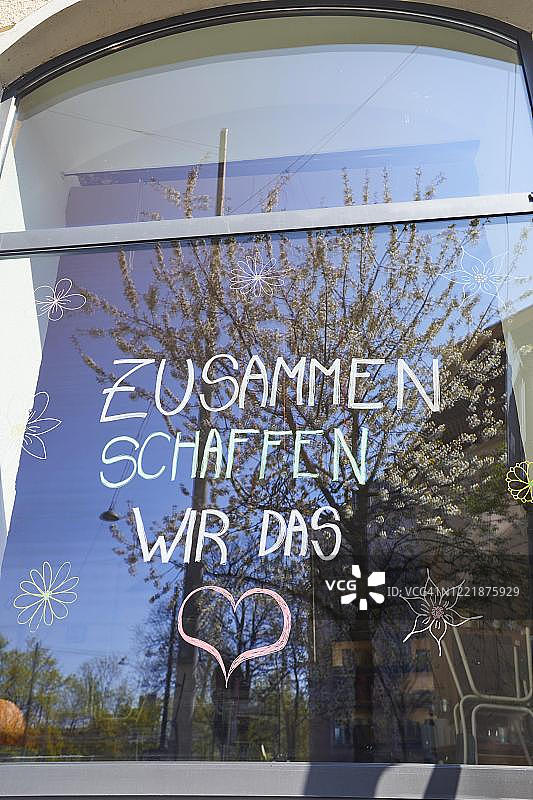 ZUSAMMEN
SCHAFFEN
WIR DAS
VCG
ID: VCG41N1221875929